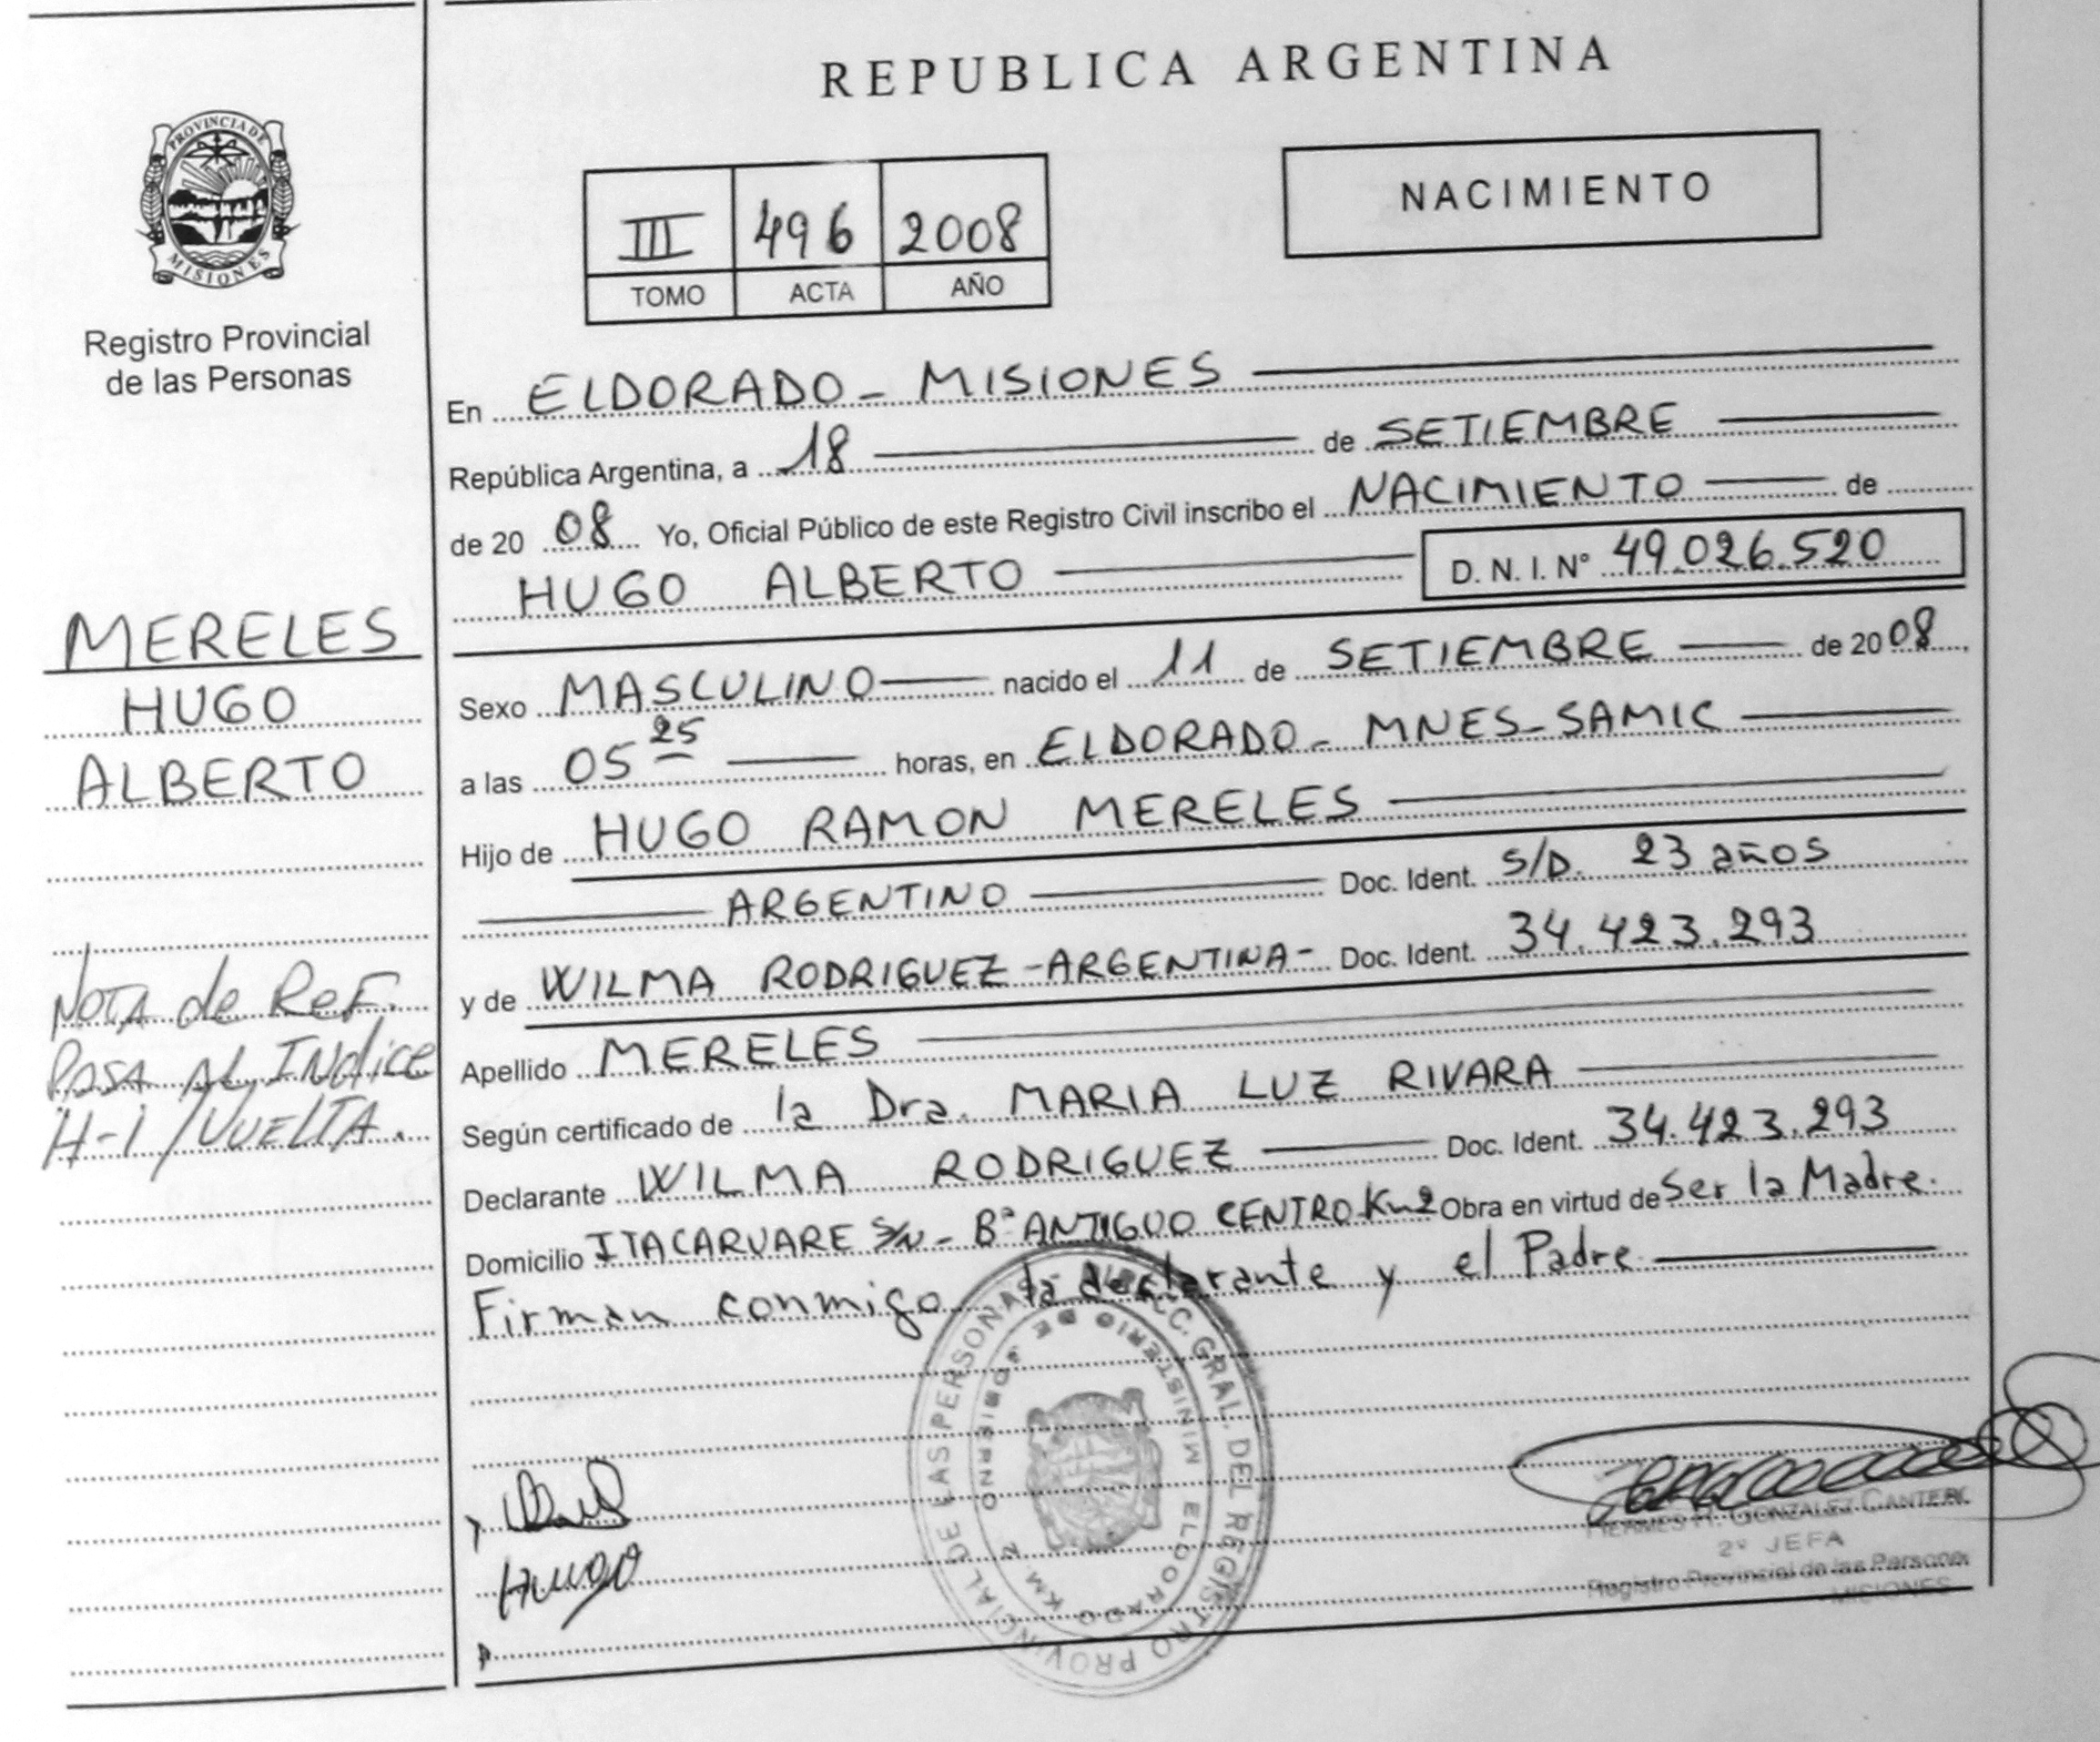 REPUBLICA ARGENTINA
PROVINCIA DE
MISIONES
Registro Provincial
de las Personas
III 496 2008
TOMO ACTA AÑO
NACIMIENTO
En ELDORADO - MISIONES
República Argentina, a 18 de SETIEMBRE
de 20 08 Yo, Oficial Público de este Registro Civil inscribo el NACIMIENTO de
HUGO ALBERTO D. N. I. N° 49.026.520
MERELES
HUGO
ALBERTO
Sexo MASCULINO nacido el 11 de SETIEMBRE de 20 08,
a las 05 25 horas, en ELDORADO - MNES - SAMIC
Hijo de HUGO RAMON MERELES
ARGENTINO Doc. Ident. S/D. 23 años
y de WILMA RODRIGUEZ - ARGENTINA - Doc. Ident. 34.423.293
Apellido MERELES
Según certificado de la Dra. MARIA LUZ RIVARA
Declarante WILMA RODRIGUEZ Doc. Ident. 34.423.293
Domicilio ITACARUARE S/N - B° ANTIGUO CENTRO Km2 Obra en virtud de Ser la Madre.
Firman conmigo la declarante y el Padre
NOTA de ReF.
PASA AL INdice
H-1/VUELTA.
DIRECC. GRAL. DEL REGISTRO PROVINCIAL DE LAS PERSONAS
MINISTERIO DE GOBIERNO
ELDORADO KM. 2
Hugo
HERMES H. GONZALEZ CANTERO
2° JEFA
Registro Provincial de las Personas
MISIONES